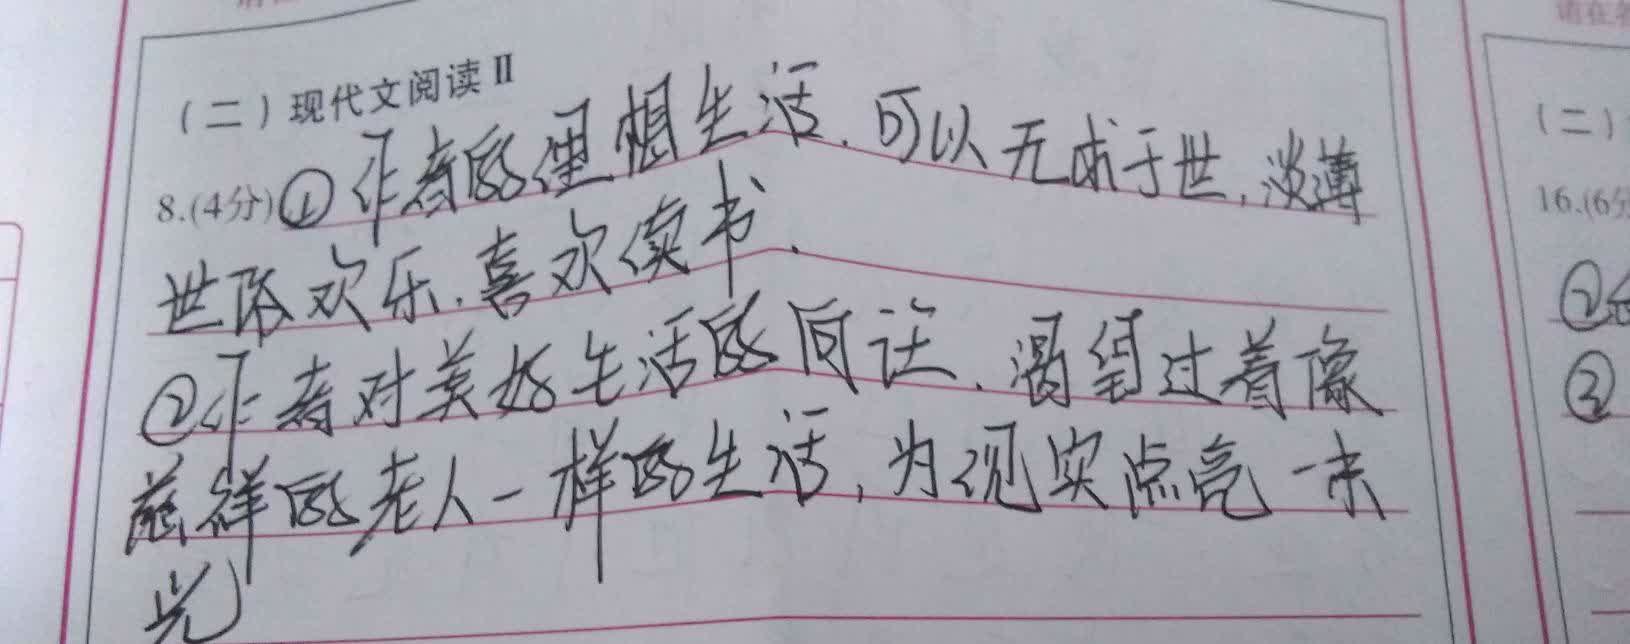 请在
(二)现代文阅读Ⅱ
8.(4分)①作者的理想生活.可以无求于世,淡薄
世俗欢乐.喜欢读书.
②作者对美好生活的向让.渴望过着像
慈祥的老人一样的生活,为现实点亮一束
光
请在
(二)
16.(6分
②
③